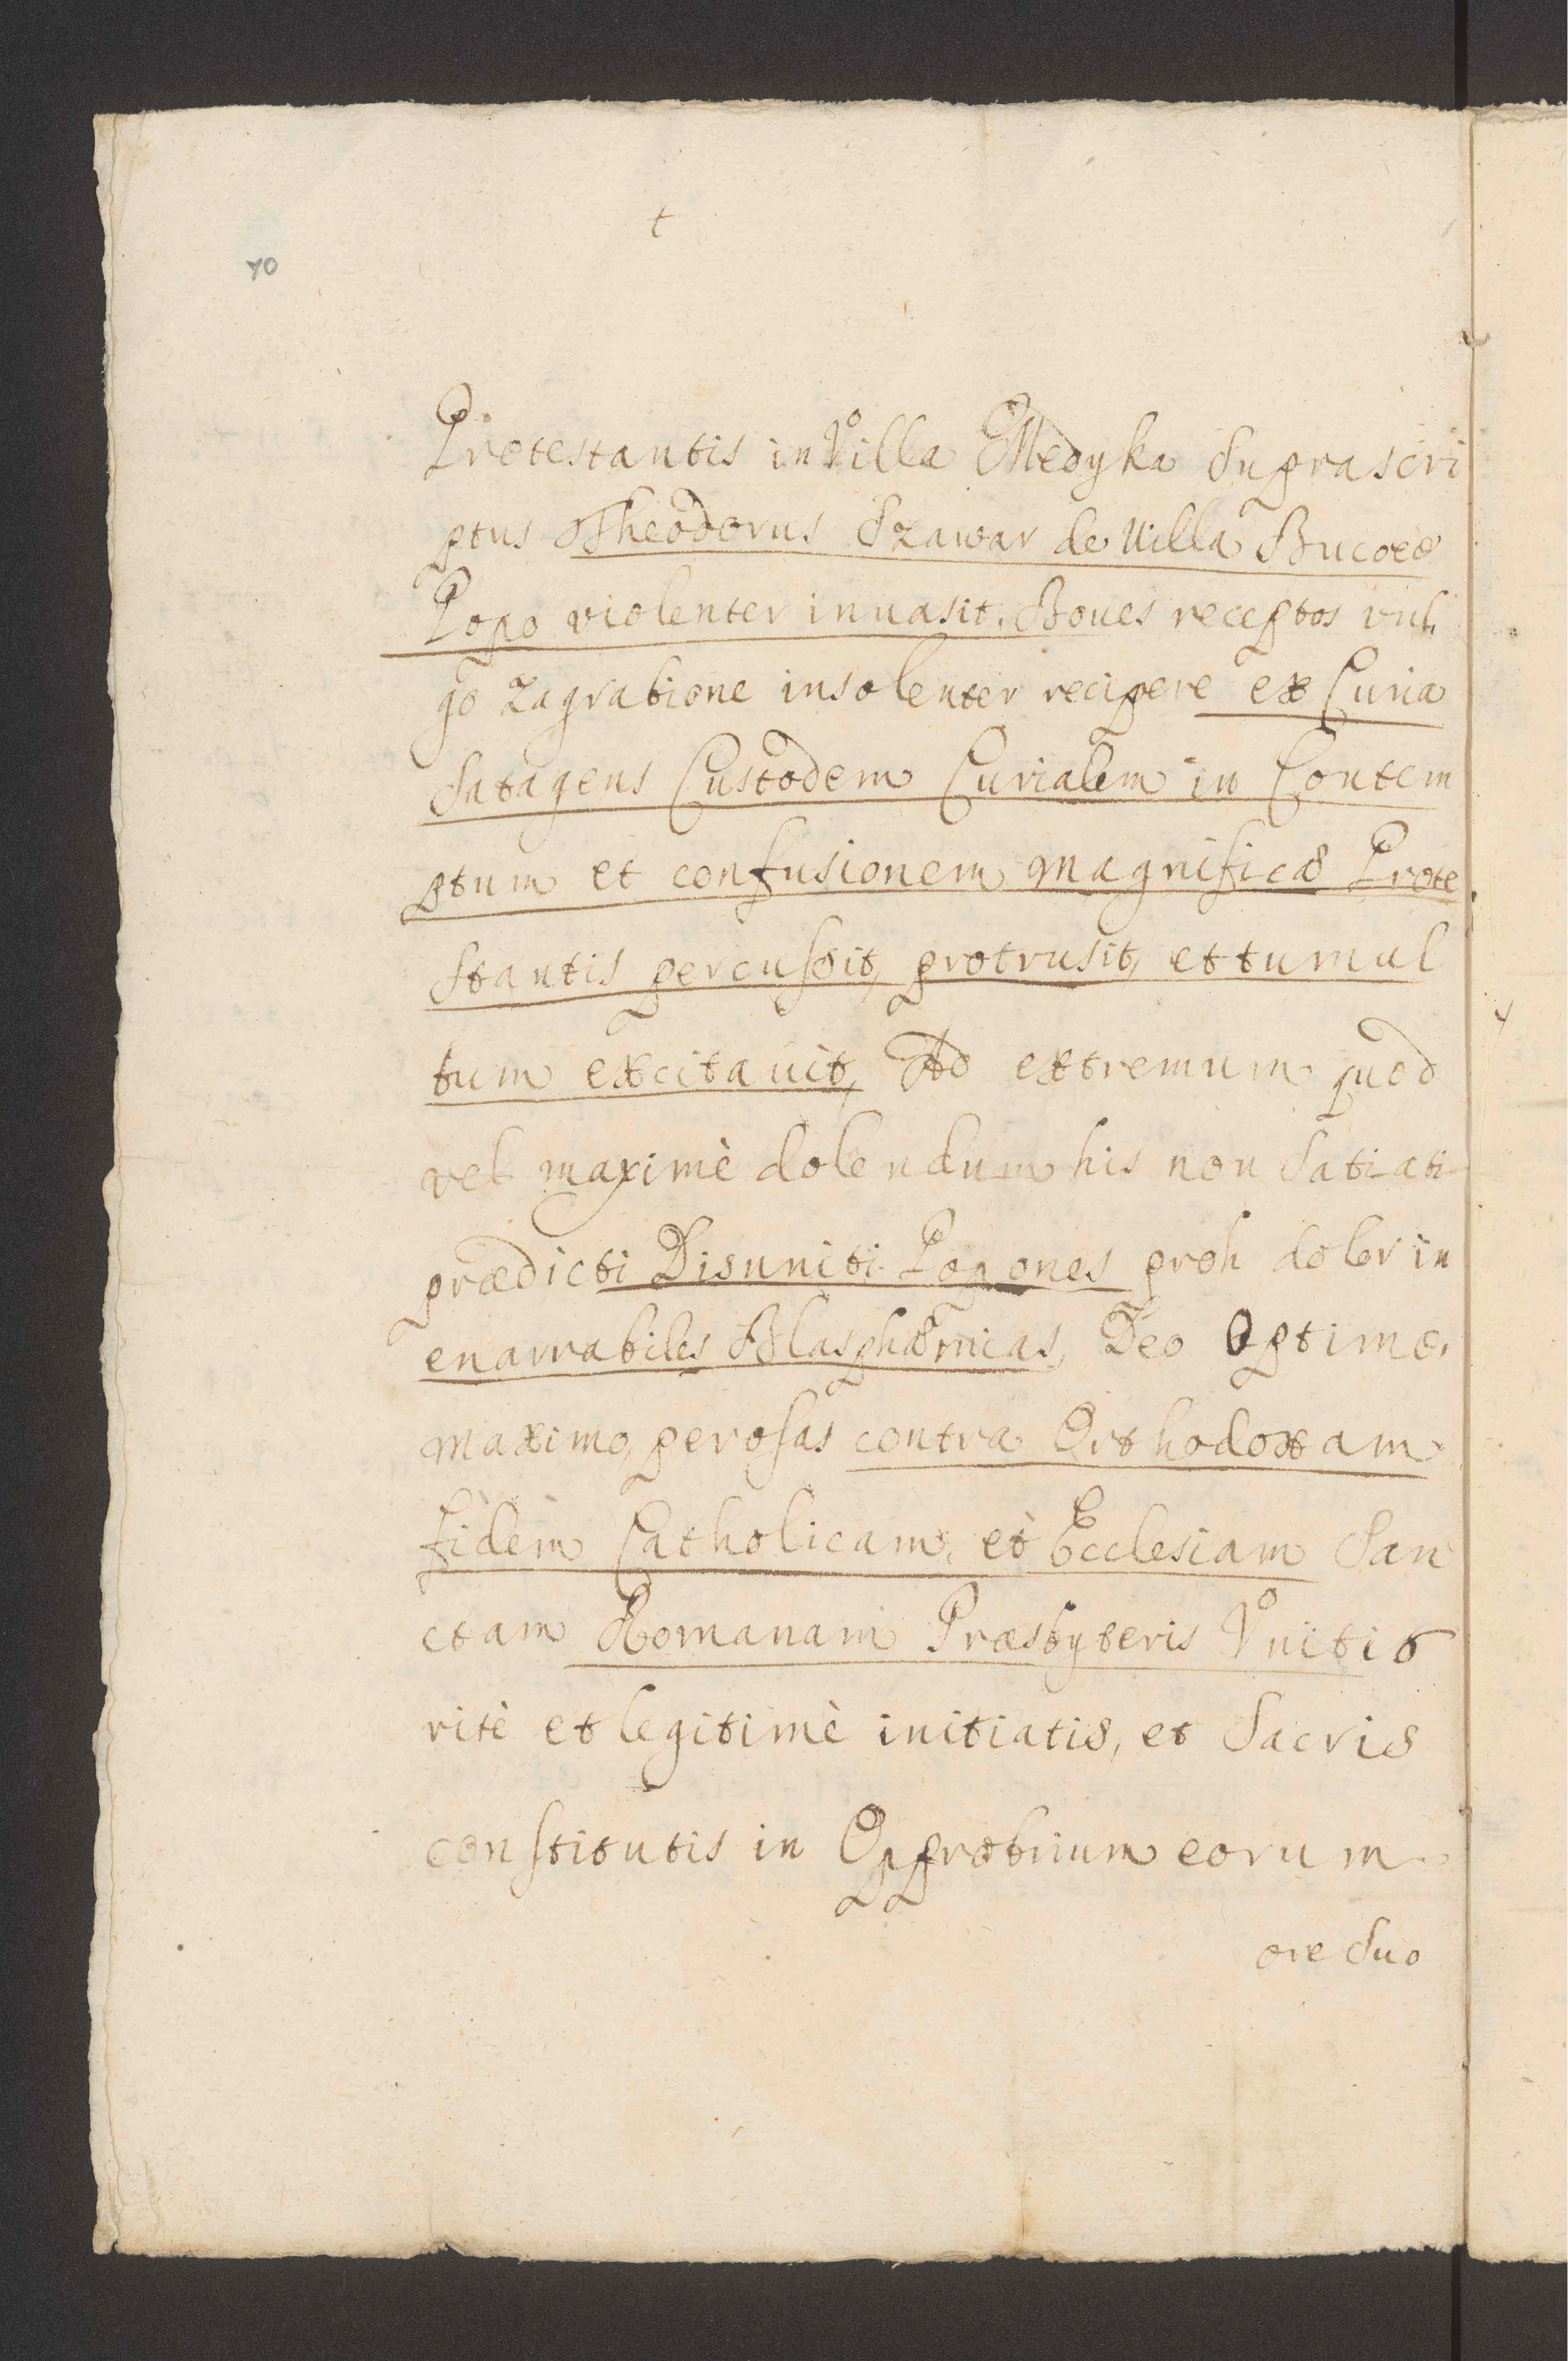 t
70
Protestantis in Villa Medyka Suprascri
ptus Theodorus Szawar de Villa Bucow
Popo violenter inuasit. Boues receptos vul,
go Zagrabione insolenter recipere ex Curia
Satagens Custodem Curialem in Contem
ptum et confusionem Magnificæ Prote
stantis percussit, protrusit, et tumul
tum excitauit, Ad extremum quod
vel maximè dolendum his non Satiati
prædicti Disuniti Popones proh dolor in
enarrabiles Blasphæmias, Deo Optimo,
Maximo, perosas contra Orthodoxam
fidem Catholicam, et Ecclesiam San
ctam Romanam Præsbyteris Vnitis
ritè et legitimè initiatis, et Sacris
constitutis in Opprobrium eorum
ore Suo